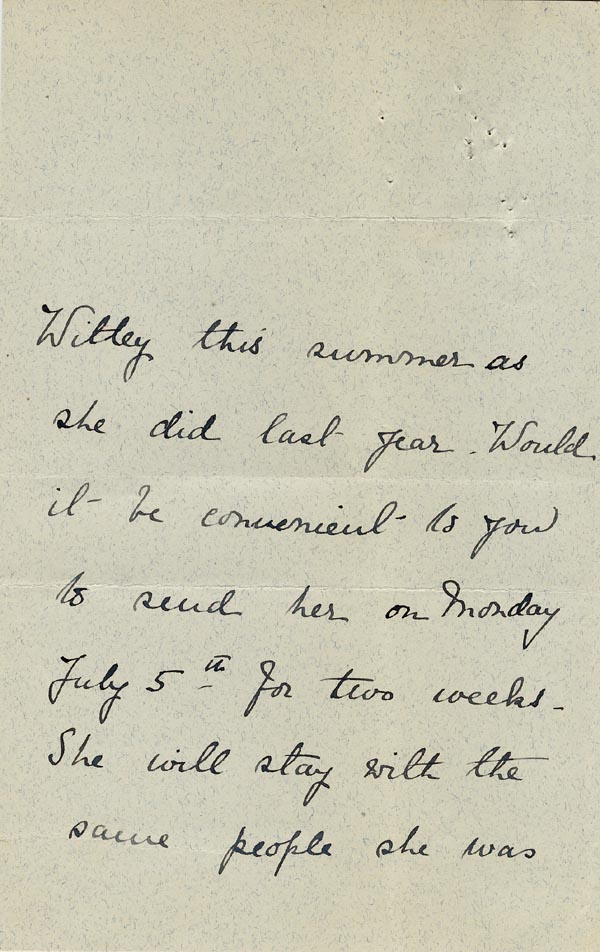 Witley this summer as
she did last year. Would
it be convenient to you
to send her on Monday
July 5th for two weeks.
She will stay with the
same people she was